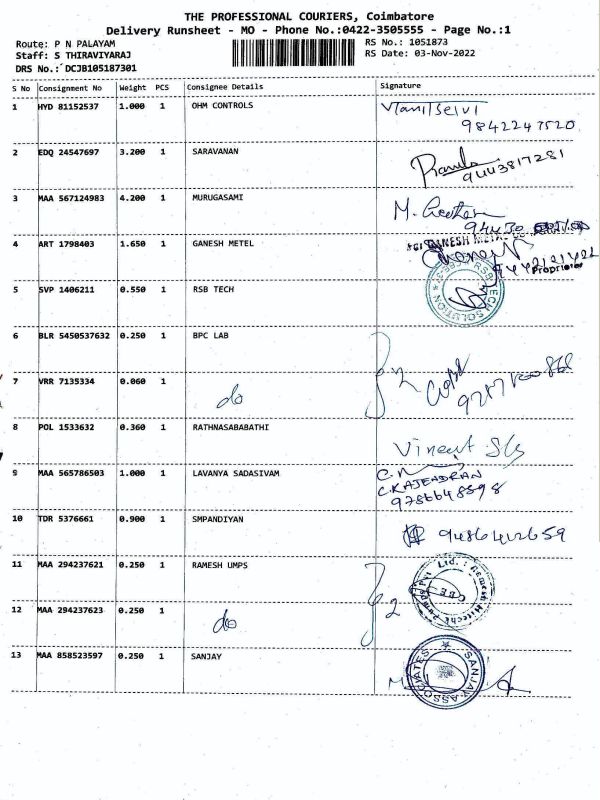 THE PROFESSIONAL COURIERS, Coimbatore
Delivery Runsheet - MO - Phone No.:0422-3505555 - Page No.:1
Route: P N PALAYAM RS No.: 1051873
Staff: S THIRAVIYARAJ RS Date: 03-Nov-2022
DRS No.: DCJB105187301
S No Consignment No Weight PCS Consignee Details Signature
1 HYD 81152537 1.000 1 OHM CONTROLS
9842247520
2 EDQ 24547697 3.200 1 SARAVANAN
9443817281
3 MAA 567124983 4.200 1 MURUGASAMI M.
94430
4 ART 1798403 1.650 1 GANESH METEL GANESH
Proprietor
5 SVP 1406211 0.550 1 RSB TECH RSB TECH SOLUTION
6 BLR 5450537632 0.250 1 BPC LAB
7 VRR 7135334 0.060 1 do 2
8 POL 1533632 0.360 1 RATHNASABABATHI
Vincent
9 MAA 565786503 1.000 1 LAVANYA SADASIVAM
C.RAJENDRAN
9786648598
10 TDR 5376661 0.900 1 SMPANDIYAN 9486412659
11 MAA 294237621 0.250 1 RAMESH UMPS
12 MAA 294237623 0.250 1 do 2
13 MAA 858523597 0.250 1 SANJAY SANJAY ASSOCIATES